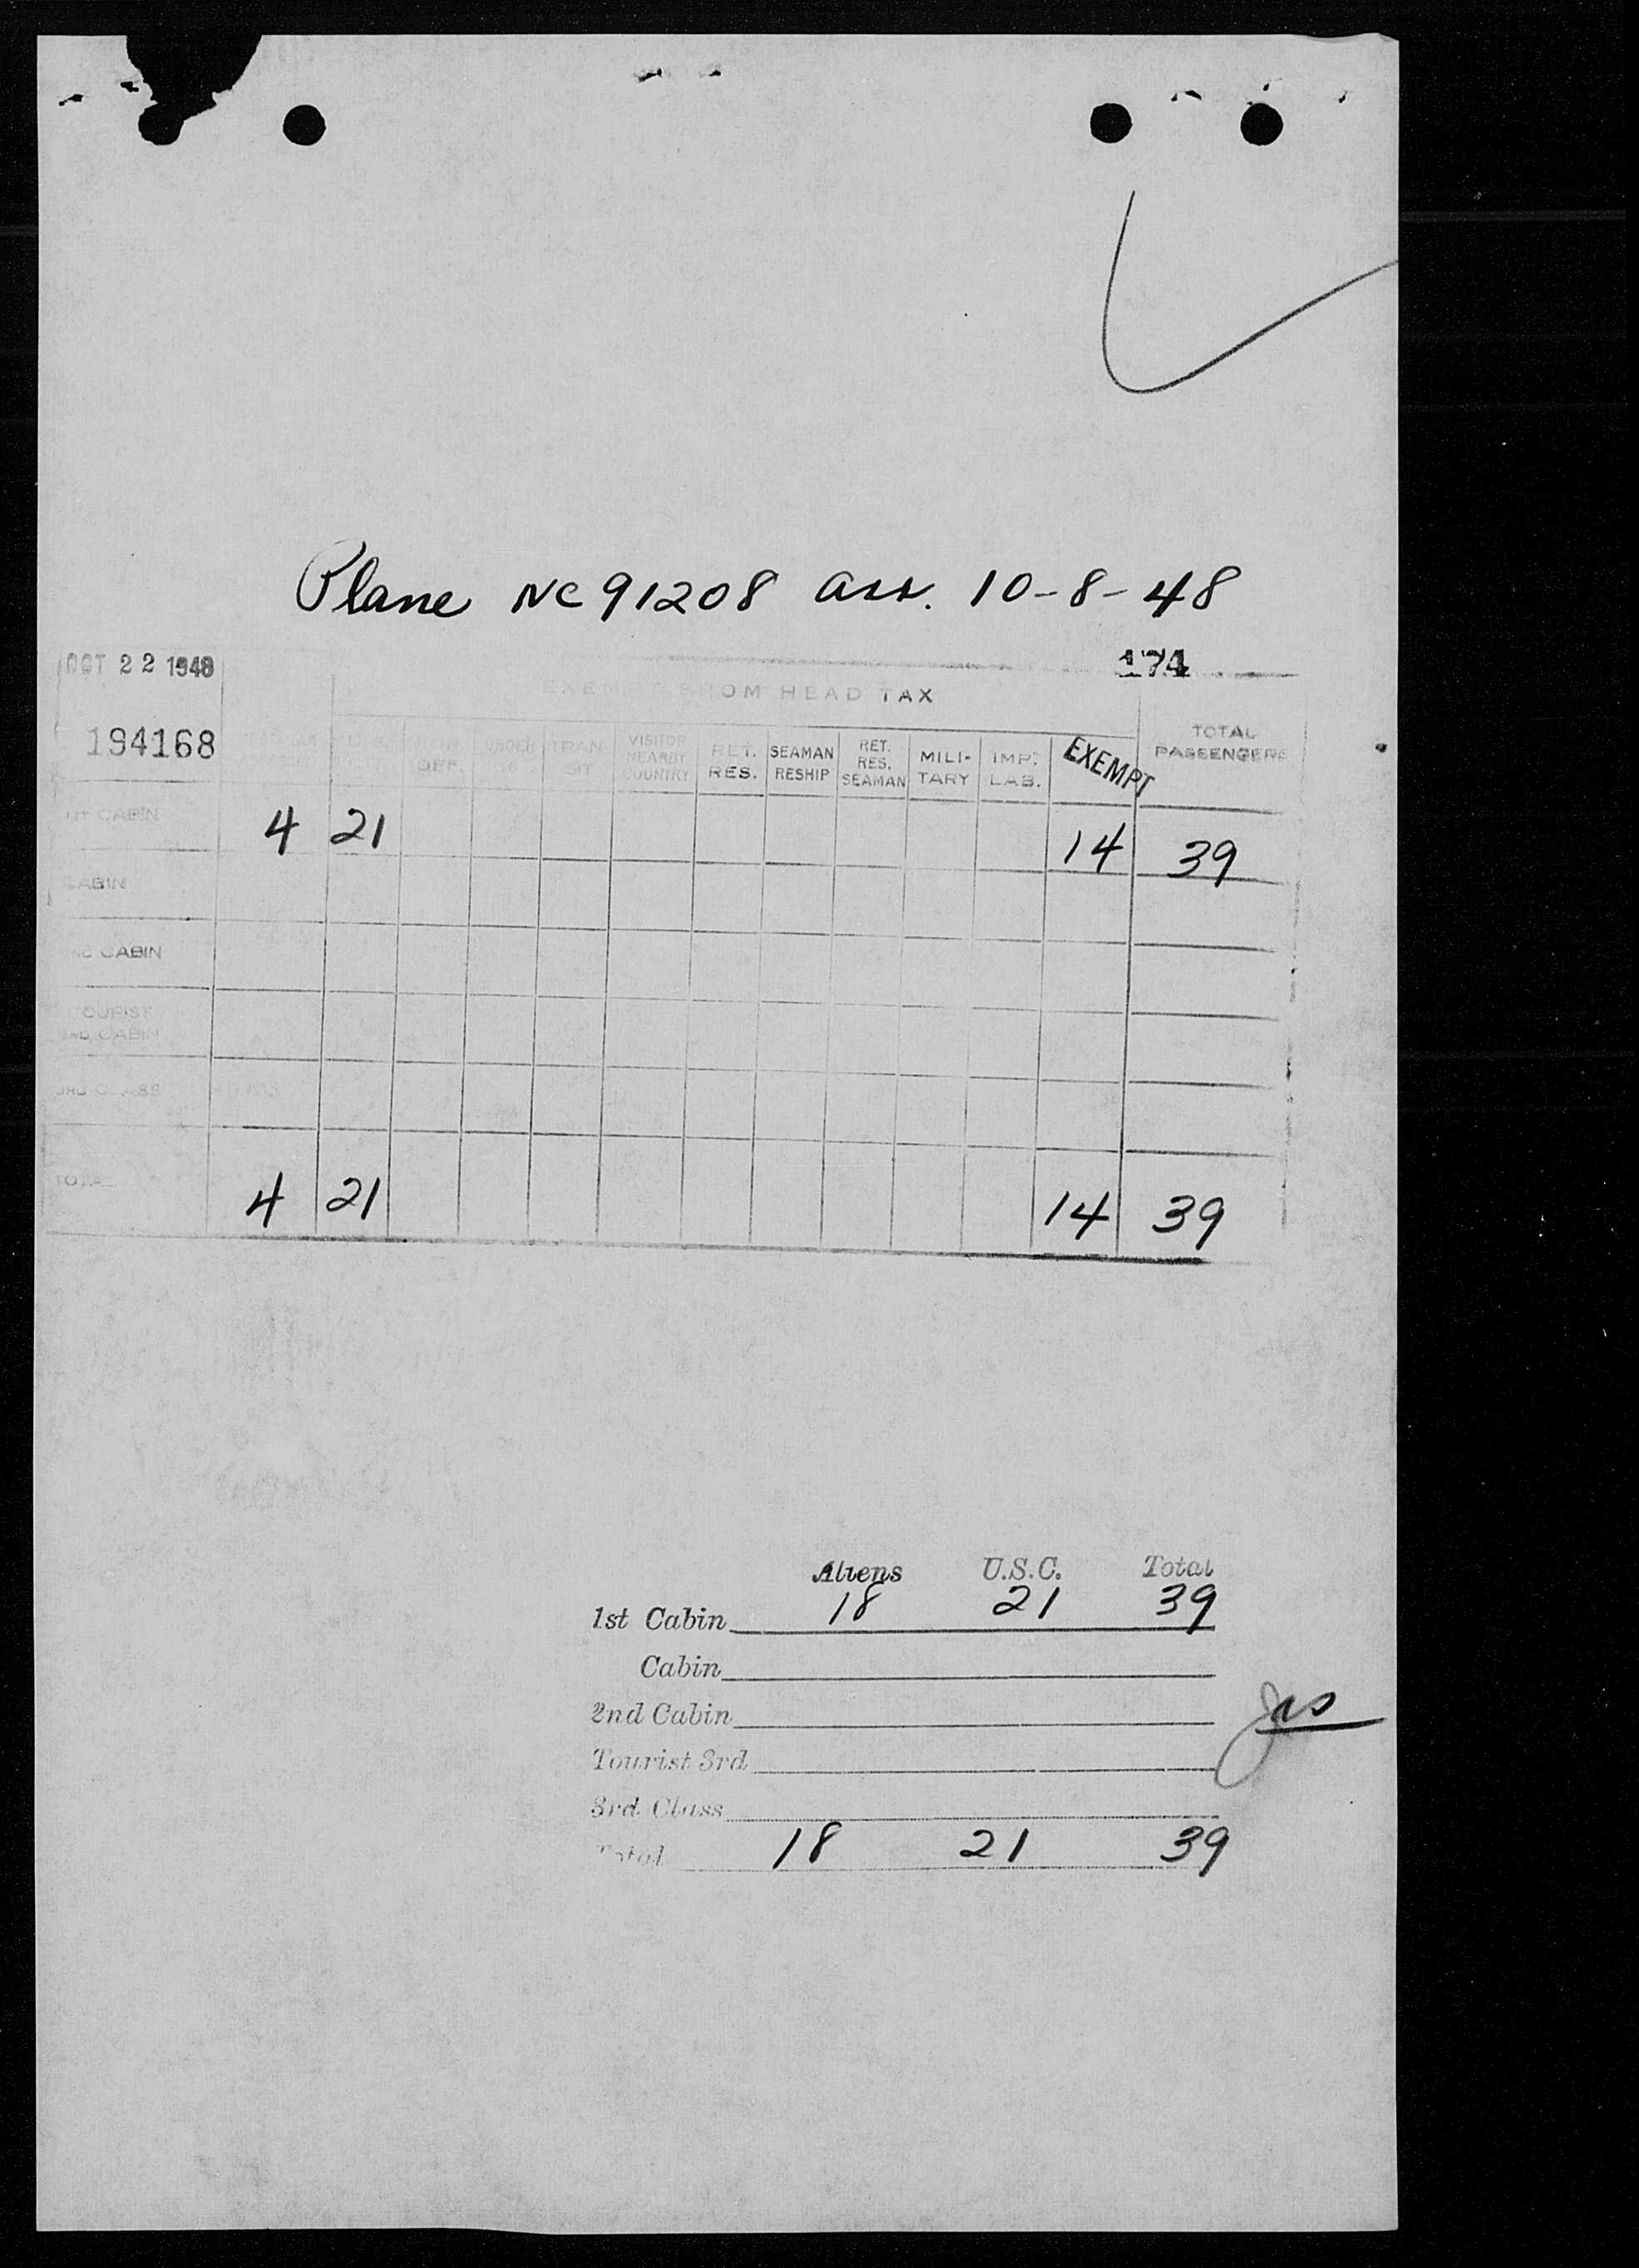 Plane NC 91208 arr. 10-8-48
OCT 22 1948
174
EXEMPT FROM HEAD TAX
194168
UNDER 16
TRANSIT
VISITOR NEARBY COUNTRY
RET. RES.
SEAMAN RESHIP
RET. RES. SEAMAN
MILI-TARY
IMP. LAB.
EXEMPT
TOTAL PASSENGERS
1ST CABIN 4 21 14 39
CABIN
2ND CABIN
TOURIST
3RD CABIN
3RD CLASS
TOTAL 4 21 14 39
Aliens U.S.C. Total
1st Cabin 18 21 39
Cabin
2nd Cabin
Tourist 3rd
3rd Class
Total 18 21 39